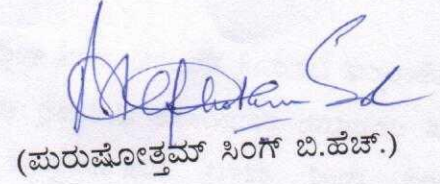 (ಪುರುಷೋತ್ತಮ್ ಸಿಂಗ್ ಬಿ.ಹೆಚ್.)